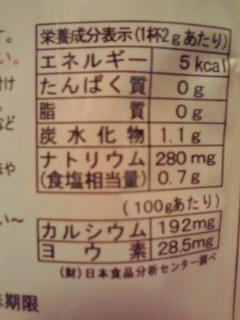 す。
栄養成分表示(1杯2gあたり)
エネルギー 5kcal
たんぱく質 0g
脂質 0g
炭水化物 1.1g
ナトリウム 280mg
(食塩相当量) 0.7g
(100gあたり)
カルシウム 192mg
ヨウ素 28.5mg
(財)日本食品分析センター調べ
い。
付け
など
や
い〜
味期限